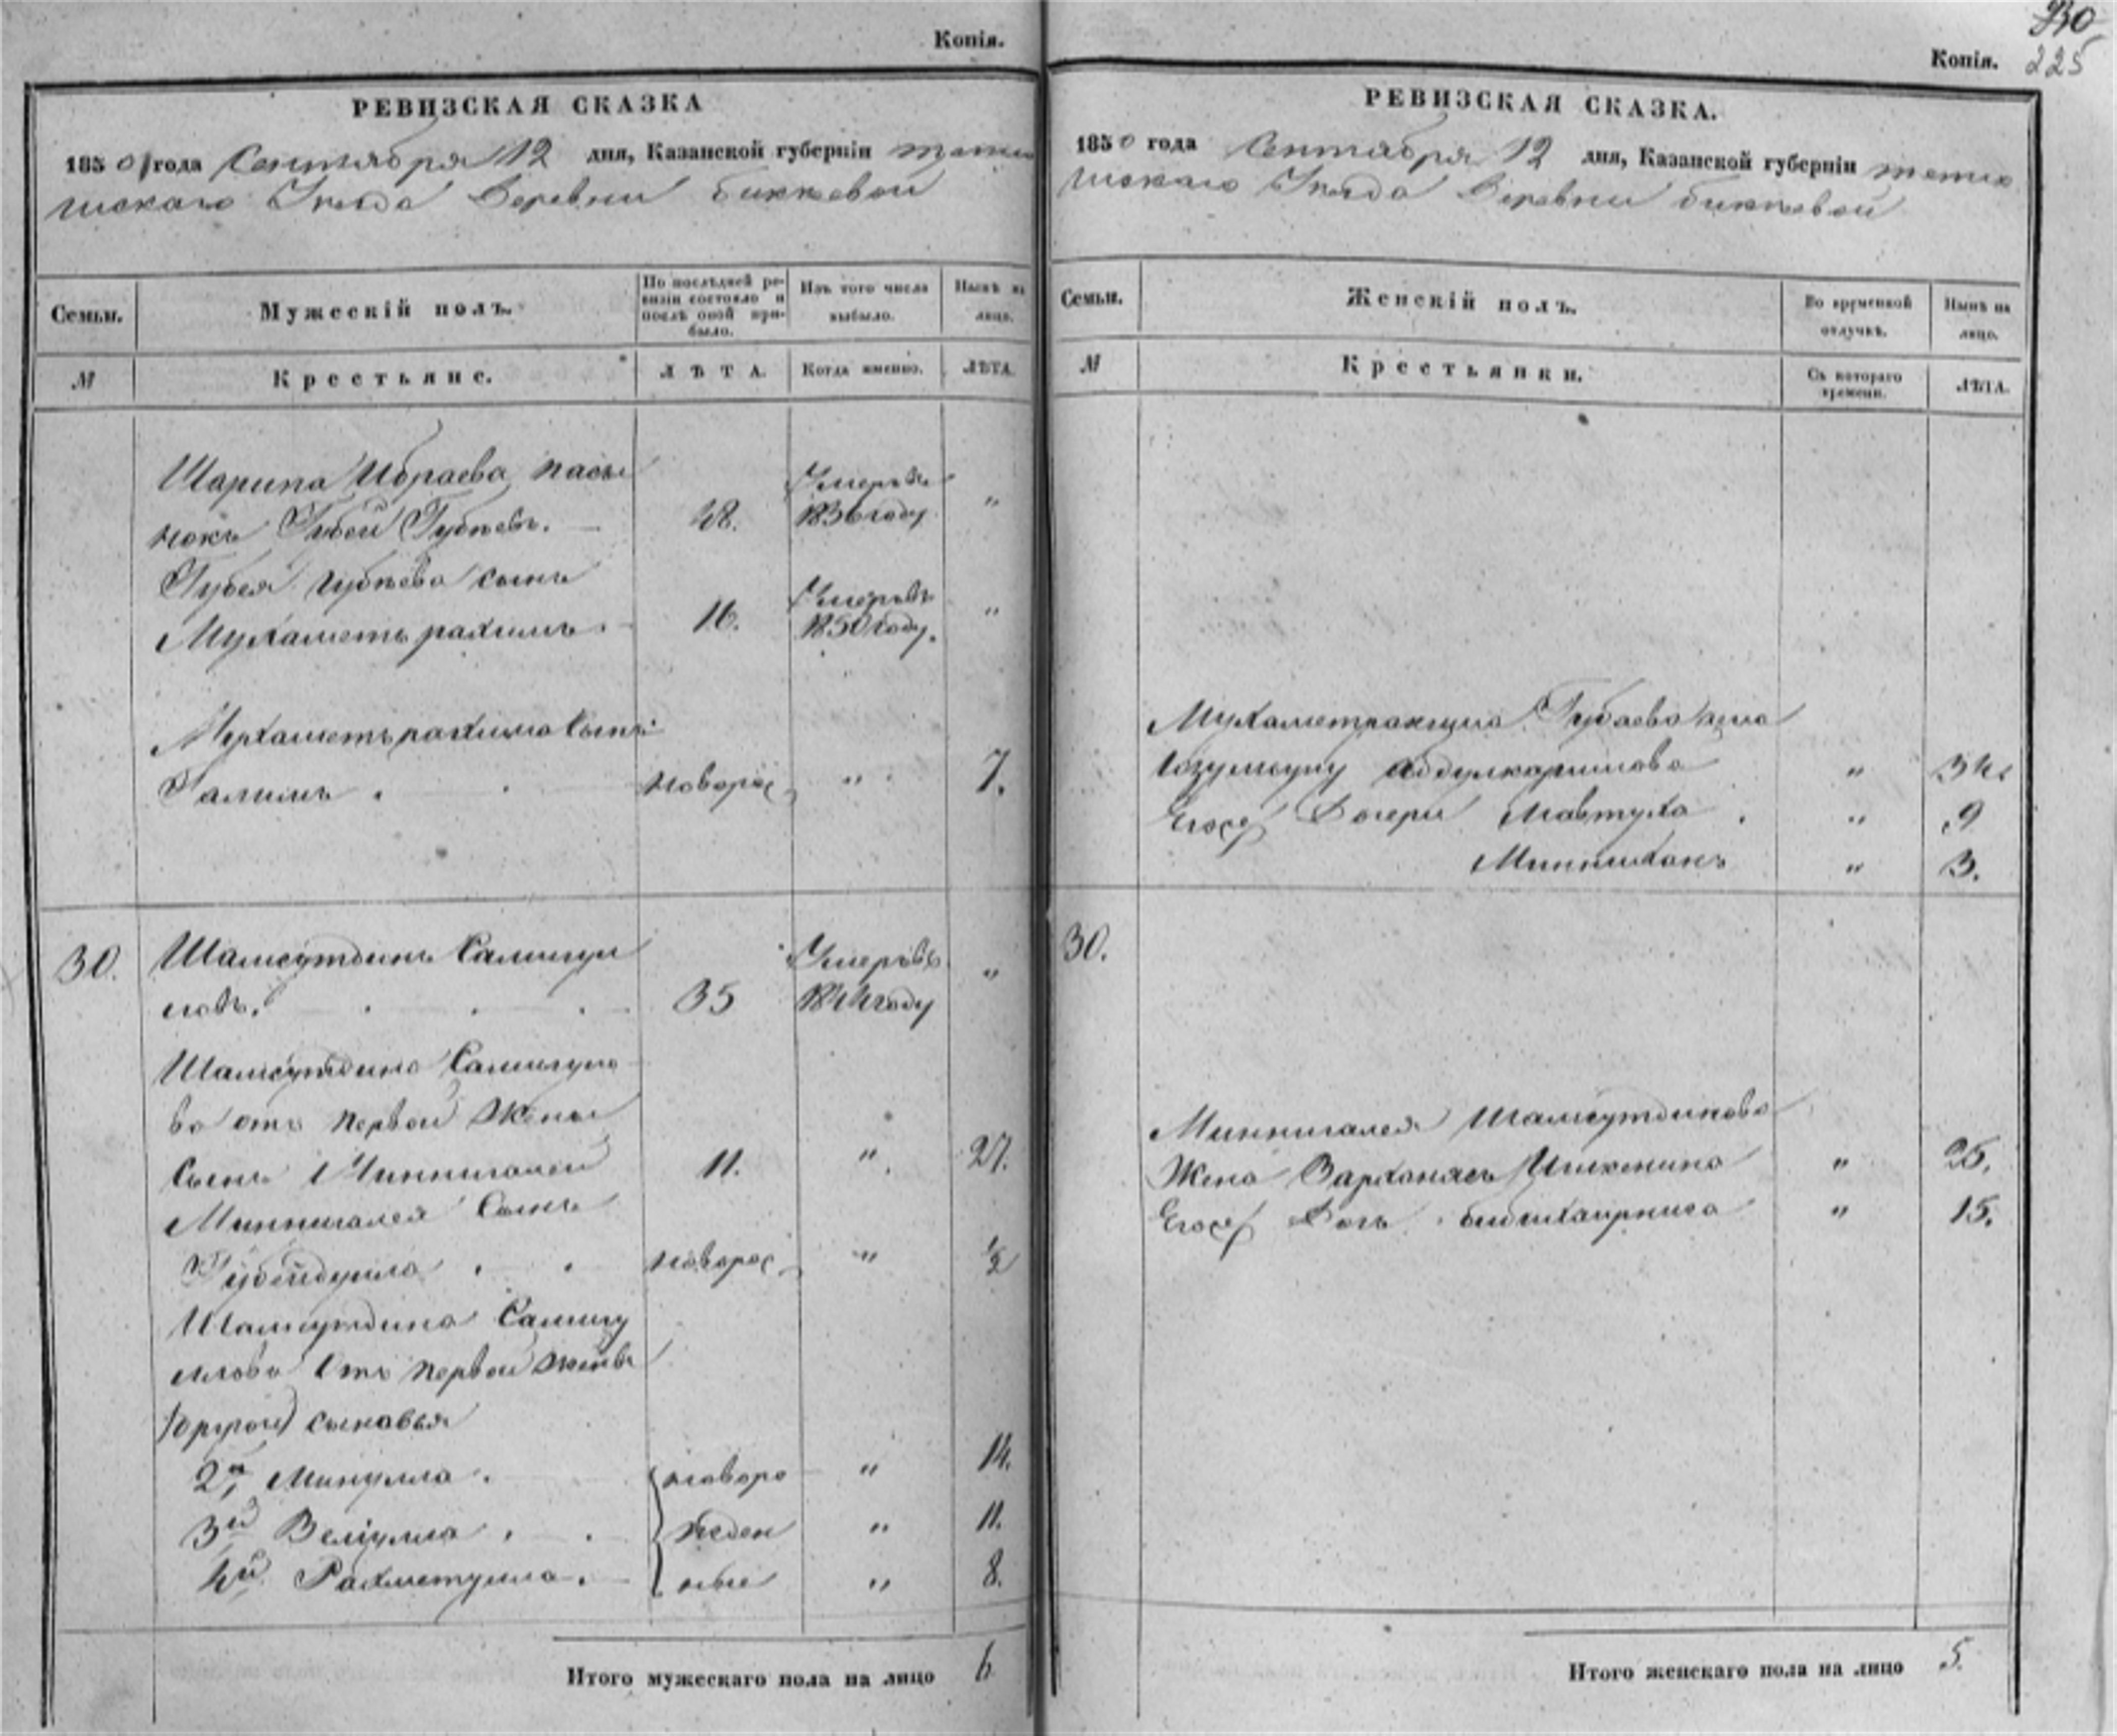 Копія.
РЕВИЗСКАЯ СКАЗКА
1850 года Сентября 12 дня, Казанской губерніи тетю
шскаго Уезда Деревни биккеевой
Семьи.
Мужескій полъ.
По послѣдней ре-
визіи состояло и
послѣ оной при-
было.
Изъ того числа
выбыло.
Нынѣ на
лицо.
№
Крестьяне.
ЛѢТА.
Когда именно.
ЛѢТА.
Шарипа Ибраева пасы
нокъ Губей Губеевъ. 48. Умеръ въ 1836 году "
Губея Губеева сынъ
Мухаметь рахимъ. 16. Умеръ въ 1850 году. "
Мухаметь рахима Сынъ
Галимъ . новорос " 7.
30. Шамсутдинъ Самигул
ловъ. 35 Умеръ въ 1844 году "
Шамсутдина Самигуло
ва отъ первой жены
Сынъ Миннигалей 11. " 27.
Миннигалея Сынъ
Губейдулла . . новорос " 1/2
Шамсутдина Самигу
лова Отъ первой жены
другой сыновья
2й Минулла . новоро " 14.
3й Велиулла . . жден " 11.
4й Рахметулла . ные " 8.
Итого мужескаго пола на лицо 6
Копія.
30
225
РЕВИЗСКАЯ СКАЗКА.
1850 года Сентября 12 дня, Казанской губерніи тетю
шскаго Уезда Деревни биккеевой
Семьи.
Женскій полъ.
Во временной
отлучкѣ.
Нынѣ на
лицо.
№
Крестьянки.
Съ котораго
времени.
ЛѢТА.
Мухаметрахима Губаева жена
Абдулкаримова " 34
Его Дочери Мавтуха . " 9
Миннихан " 3.
30.
Миннигалея Шамсутдинова
Жена Ишкенина " 25.
Его Дочь " 15.
Итого женскаго пола на лицо 5.